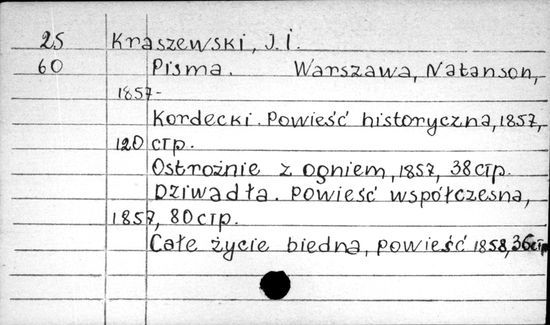 25 Kraszewski, J. I.
60 Pisma. Warszawa, Natanson,
1857-
Kordecki. Powieść historyczna, 1857,
120 стр.
Ostrożnie z ogniem, 1857, 38 стр.
Dziwadła. Powieść współczesna,
1857, 80 стр.
Całe życie biedna, powieść 1858, 36 стр